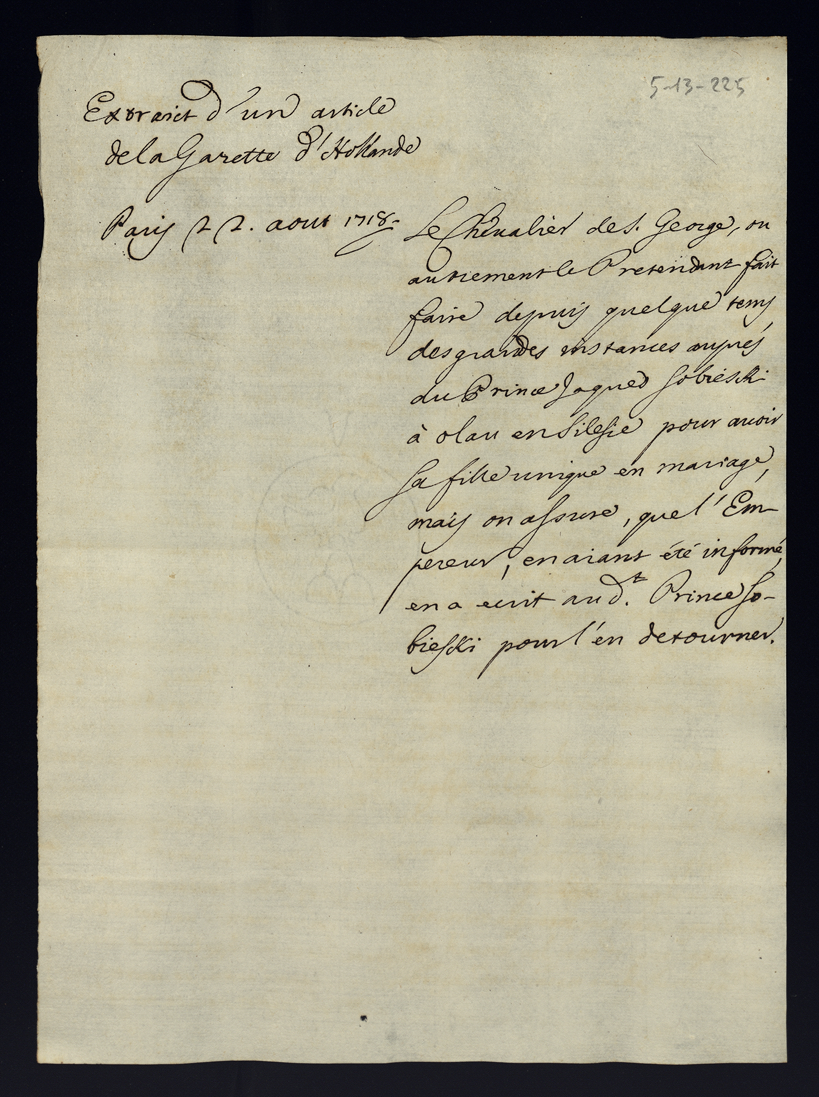 5-13-225
Extraict d'un article
de la Gazette d'Hollande
Paris 22. aout 1718.
Le Chevalier de S. George, ou
autrement le Pretendant fait
faire depuis quelque tems
des grandes instances auprés
du Prince Jaques Sobieski
à olau en Silesie pour avoir
sa fille unique en mariage,
mais on assure, que l'Em-
pereur, en aiant été informé,
en a ecrit au d.t Prince So-
bieski pour l'en detourner.